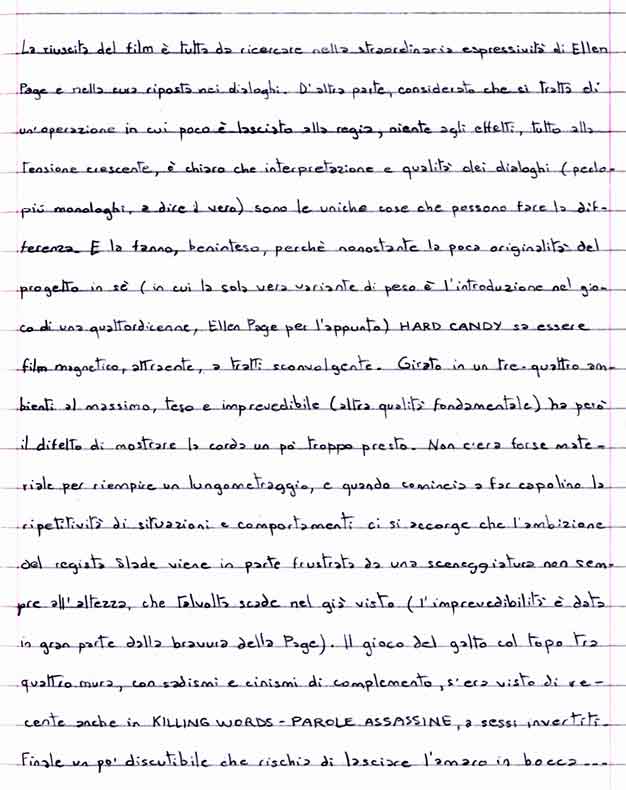 La riuscita del film è tutta da ricercare nella straordinaria espressività di Ellen
Page e nella cura riposta nei dialoghi. D'altra parte, considerato che si tratta di
un'operazione in cui poco è lasciato alla regia, niente agli effetti, tutto alla
tensione crescente, è chiaro che interpretazione e qualità dei dialoghi (perlo-
più monologhi, a dire il vero) sono le uniche cose che possono fare la dif-
ferenza. E la fanno, beninteso, perchè nonostante la poca originalità del
progetto in sè (in cui la sola vera variante di peso è l'introduzione nel gio-
co di una quattordicenne, Ellen Page per l'appunto) HARD CANDY sa essere
film magnetico, attraente, a tratti sconvolgente. Girato in un tre-quattro am-
bienti al massimo, teso e imprevedibile (altra qualità fondamentale) ha però
il difetto di mostrare la corda un po' troppo presto. Non c'era forse mate-
riale per riempire un lungometraggio, e quando comincia a far capolino la
ripetitività di situazioni e comportamenti ci si accorge che l'ambizione
del regista Slade viene in parte frustrata da una sceneggiatura non sem-
pre all'altezza, che talvolta scade nel già visto (l'imprevedibilità è data
in gran parte dalla bravura della Page). Il gioco del gatto col topo tra
quattro mura, con sadismi e cinismi di complemento, s'era visto di re-
cente anche in KILLING WORDS - PAROLE ASSASSINE, a sessi invertiti.
Finale un po' discutibile che rischia di lasciare l'amaro in bocca...